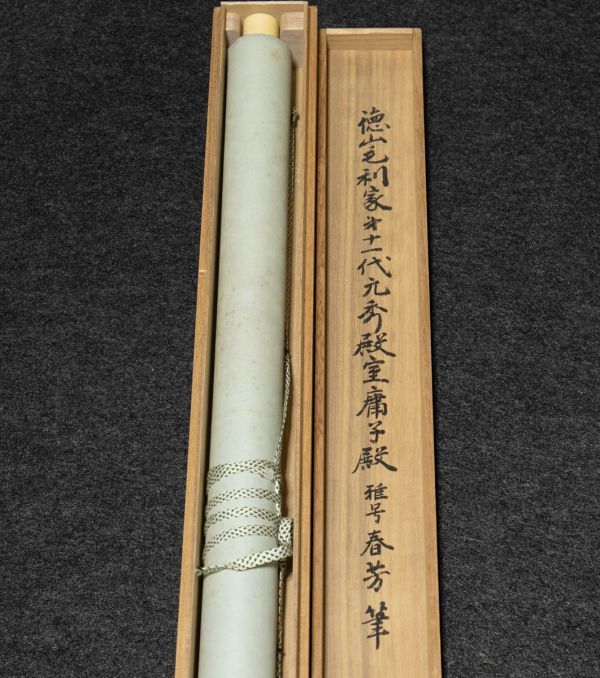 徳山毛利家才十一代元秀殿室庸子殿 雅号春芳筆